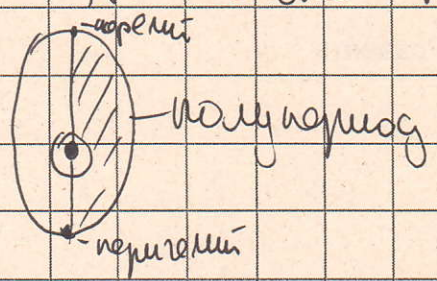 -афелий
-полупериод
-перигелий